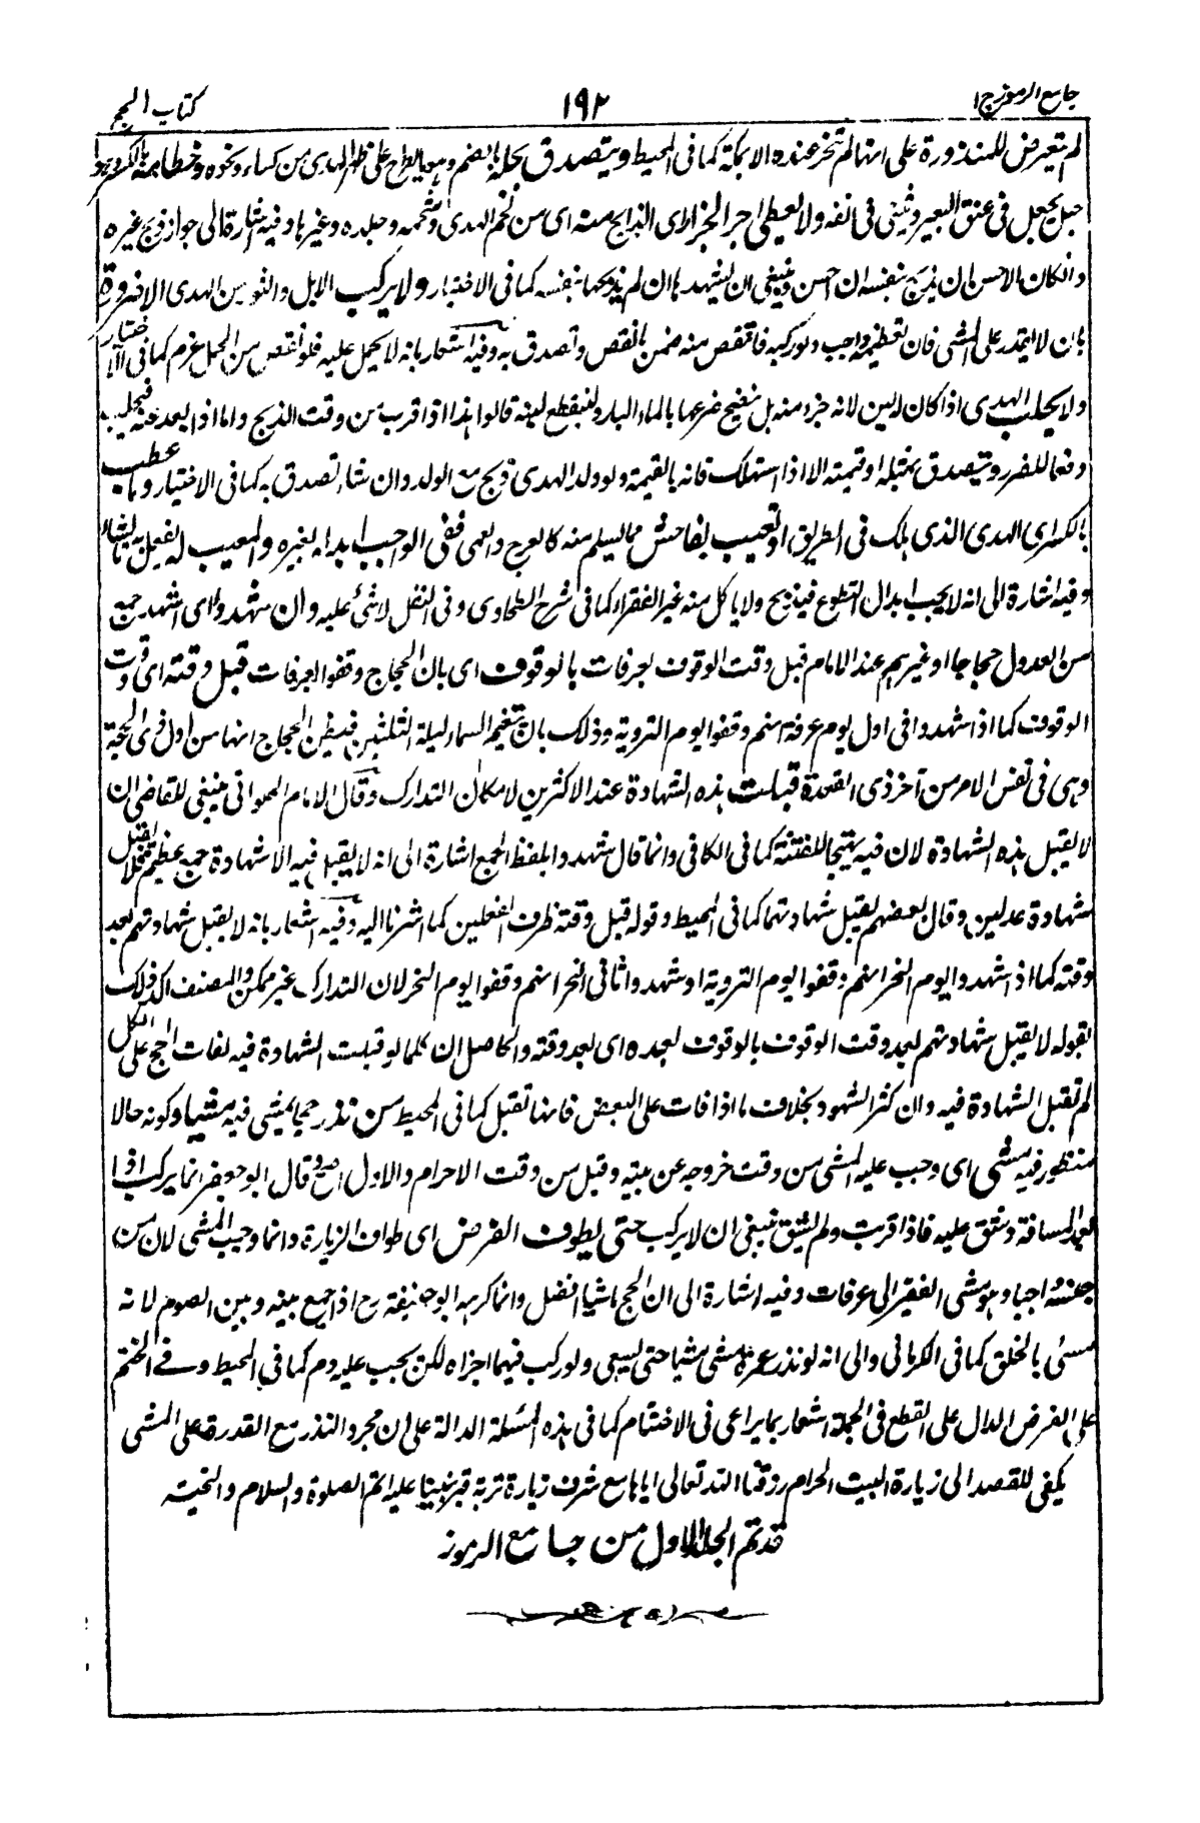 جامع الرموز ج ١
١٩٢
كتاب الحج
لم يتعرض للمنذورة على انها لم تنحر عنده الا بمكة كما فى المحيط ويتصدق بجلها بالضم وهو ما يطرح على ظهر الهدى من كساء ونحوه وخطامها بالكسر وهو
حبل يجعل فى عنق البعير ويثنى فى انفه ولا يعطى اجر الجزار اى الذابح منه اى من لحم الهدى وشحمه وجلده وغيرها وفيه اشارة الى جواز ذبح غيره
وانكان الاحسن ان يذبح بنفسه ان احسن وينبغى ان يشهدها ان لم يذبحها بنفسه كما فى الاختيار ولا يركب الابل والثور من الهدى الا ضرورة
بان لا يقدر على المشى فان تعظيمه واجب ولو ركبه فانتقص منه ضمن ما نقص وتصدق به وفيه اشعار بانه لا يحمل عليه فلو نقص من الحمل غرم كما فى الاختيار
ولا يحلب الهدى اذا كان له لبن لانه جزء منه بل ينضح ضرعها بالماء البارد لينقطع لبنه قالوا هذا اذا قرب من وقت الذبح واما اذا بعد عنه فيحلب
دفعا للضرر ويتصدق بمثله او قيمته الا اذا استهلك فانه بالقيمة ولو ولد الهدى ذبح مع الولد وان شاء تصدق به كما فى الاختيار وما عطب
بالكسر اى الهدى الذى هلك فى الطريق او تعيب بفاحش مما يسلم منه كالعرج والعمى ففى الواجب ابداله بغيره والمعيب له يفعل به ما يشاء
وفيه اشارة الى انه لا يجب ابدال التطوع فيذبح ولا ياكل منه غير الفقراء كما فى شرح الطحاوى وفى النفل لا شئ عليه وان شهدوا اى شهد جمع
من العدول حجاجا او غيرهم عند الامام قبل وقت الوقوف بعرفات بالوقوف اى بان الحجاج وقفوا بعرفات قبل وقته اى وقت
الوقوف كما اذا شهدوا فى اول يوم عرفة انهم وقفوا يوم التروية وذلك بان تتغيم السماء ليلة الثلثين فيظن الحجاج انها من اول ذى الحجة
وهى فى نفس الامر من آخر ذى القعدة قبلت هذه الشهادة عند الاكثرين لامكان التدارك وقال الامام الحلوانى ينبغى للقاضى ان
لا يقبل هذه الشهادة لان فيه تهييجا للفتنة كما فى الكافى وانما قال شهدوا بلفظ الجمع اشارة الى انه لا يقبل فيه الا شهادة جمع عظيم فلا يقبل
شهادة عدلين وقال بعضهم يقبل شهادتهما كما فى المحيط وقوله قبل وقته ظرف الفعلين كما اشرنا اليه وفيه اشعار بانه لا يقبل شهادتهم بعد
وقته كما اذا شهدوا يوم النحر انهم وقفوا يوم التروية او شهدوا ثانى النحر انهم وقفوا يوم النحر لان التدارك غير ممكن والمصنف اكد ذلك
بقوله لا يقبل شهادتهم بعد وقت الوقوف بالوقوف بعده اى بعد وقته والحاصل ان كلما لو قبلت الشهادة فيه لفات الحج على الكل
لم تقبل الشهادة فيه وان كثر الشهود بخلاف ما اذا فات على البعض فانها تقبل كما فى المحيط من نذر حجا يمشى فيه مشيا وكونه حالا
منظور فيه مشى اى وجب عليه المشى من وقت خروجه عن بيته وقيل من وقت الاحرام والاول اصح وقال ابو جعفر انما يركب اذا
بعد المسافة وشق عليه فاذا قربت ولم يشق ينبغى ان لا يركب حتى يطوف الفرض اى طواف الزيارة وانما وجب المشى لان من
جنسه واجبا وهو مشى الفقير الى عرفات وفيه اشارة الى ان الحج ماشيا افضل وانما كرهه ابو حنيفة رح اذا جمع بينه وبين الصوم لانه
مسئ بالخلق كما فى الكرمانى والى انه لو نذر عمرة مشى مشيا حتى يسعى ولو ركب فيهما اجزاه لكن يجب عليه دم كما فى المحيط وفى الختم
على الفرض الدال على القطع فى الجملة اشعار بما يراعى فى الاختتام كما فى هذه المسئلة الدالة على ان مجرد النذر مع القدرة على المشى
يكفى للقصد الى زيارة البيت الحرام رزقنا الله تعالى اياها مع شرف زيارة تربة قبر نبينا عليه اتم الصلوة والسلام والتحية
قد تم الجلد الاول من جامع الرموز